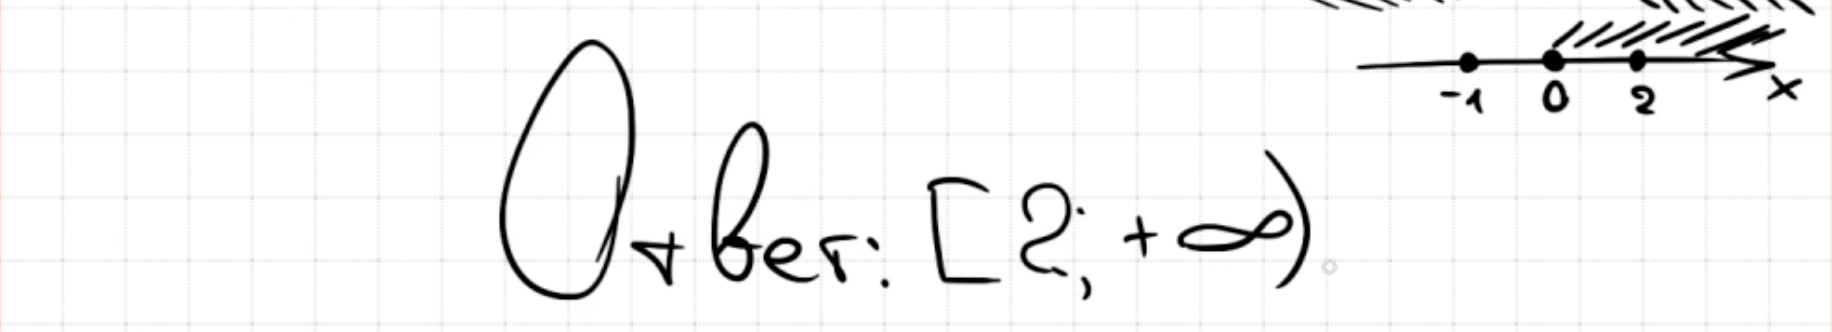 -1 0 2 x
Ответ: [2; +∞)